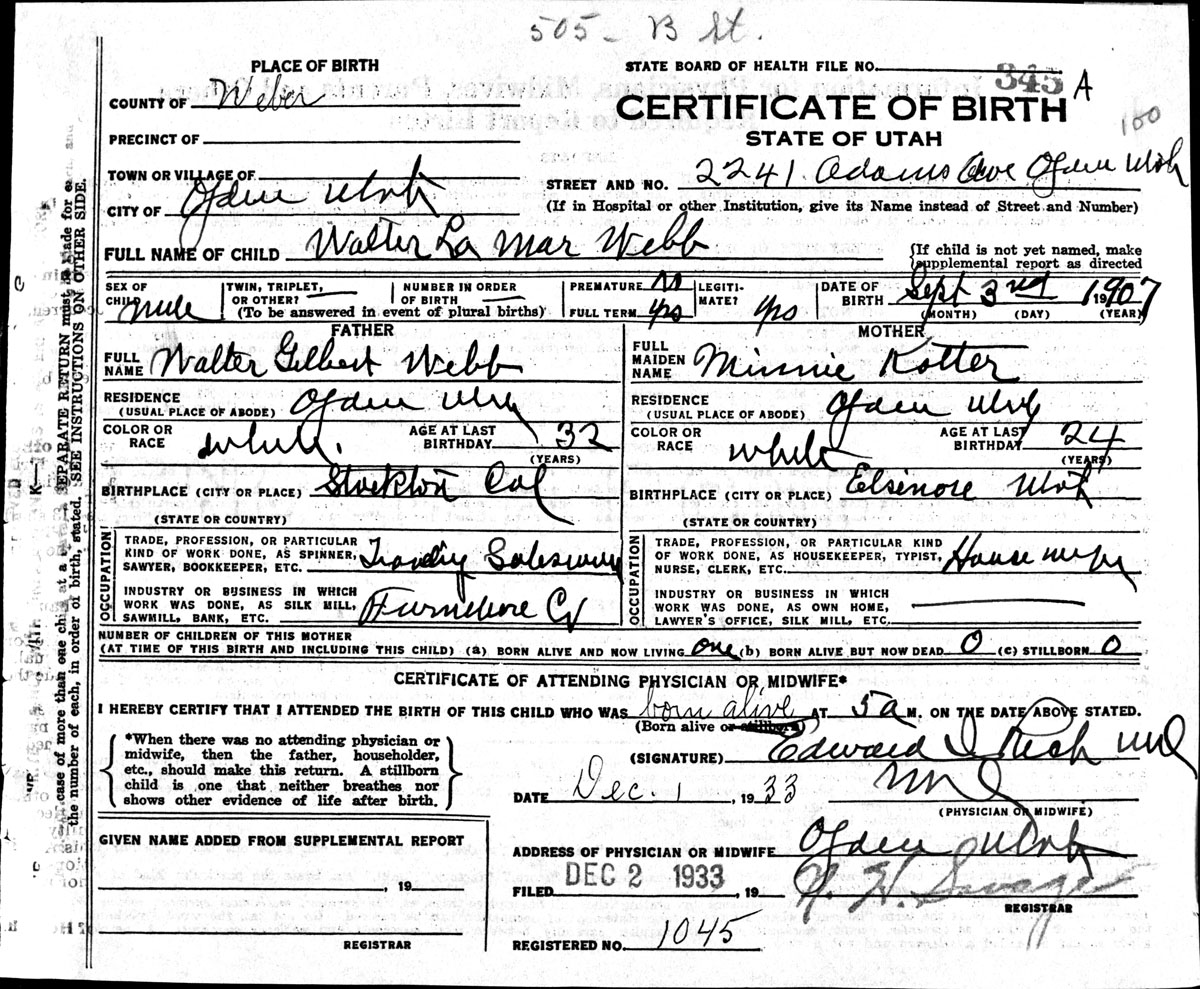 505 - B St.
PLACE OF BIRTH
COUNTY OF Weber
PRECINCT OF
TOWN OR VILLAGE OF
CITY OF Ogden Utah
STATE BOARD OF HEALTH FILE NO. 345 A
CERTIFICATE OF BIRTH
100
STATE OF UTAH
STREET AND NO. 2241 Adams Ave Ogden Utah
(If in Hospital or other Institution, give its Name instead of Street and Number)
FULL NAME OF CHILD Walter La Mar Webb
{If child is not yet named, make
supplemental report as directed
SEX OF CHILD male
TWIN, TRIPLET, OR OTHER? —
NUMBER IN ORDER OF BIRTH —
(To be answered in event of plural births)
PREMATURE no
FULL TERM yes
LEGITIMATE? yes
DATE OF BIRTH Sept 3rd 1907
(MONTH) (DAY) (YEAR)
FATHER
FULL NAME Walter Gilbert Webb
RESIDENCE (USUAL PLACE OF ABODE) Ogden Utah
COLOR OR RACE white. AGE AT LAST BIRTHDAY 32 (YEARS)
BIRTHPLACE (CITY OR PLACE) Stockton Cal
(STATE OR COUNTRY)
OCCUPATION
TRADE, PROFESSION, OR PARTICULAR
KIND OF WORK DONE, AS SPINNER,
SAWYER, BOOKKEEPER, ETC. Salesman
INDUSTRY OR BUSINESS IN WHICH
WORK WAS DONE, AS SILK MILL,
SAWMILL, BANK, ETC. Furniture Co
MOTHER
FULL MAIDEN NAME Minnie Kotter
RESIDENCE (USUAL PLACE OF ABODE) Ogden Utah
COLOR OR RACE white AGE AT LAST BIRTHDAY 24 (YEARS)
BIRTHPLACE (CITY OR PLACE) Elsinore Utah
(STATE OR COUNTRY)
OCCUPATION
TRADE, PROFESSION, OR PARTICULAR KIND
OF WORK DONE, AS HOUSEKEEPER, TYPIST,
NURSE, CLERK, ETC. Housewife
INDUSTRY OR BUSINESS IN WHICH
WORK WAS DONE, AS OWN HOME,
LAWYER'S OFFICE, SILK MILL, ETC.
NUMBER OF CHILDREN OF THIS MOTHER
(AT TIME OF THIS BIRTH AND INCLUDING THIS CHILD) (a) BORN ALIVE AND NOW LIVING one (b) BORN ALIVE BUT NOW DEAD 0 (c) STILLBORN 0
CERTIFICATE OF ATTENDING PHYSICIAN OR MIDWIFE*
I HEREBY CERTIFY THAT I ATTENDED THE BIRTH OF THIS CHILD WHO WAS born alive AT 5 a M. ON THE DATE ABOVE STATED.
(Born alive or stillborn)
*When there was no attending physician or
midwife, then the father, householder,
etc., should make this return. A stillborn
child is one that neither breathes nor
shows other evidence of life after birth.
(SIGNATURE) Edward I Rich MD
DATE Dec. 1, 1933 MD
(PHYSICIAN OR MIDWIFE)
ADDRESS OF PHYSICIAN OR MIDWIFE Ogden Utah
FILED DEC 2 1933, 19 Savage
REGISTRAR
REGISTERED NO. 1045
GIVEN NAME ADDED FROM SUPPLEMENTAL REPORT
, 19
REGISTRAR
the number of each, in order of birth, stated. SEE INSTRUCTIONS ON OTHER SIDE.